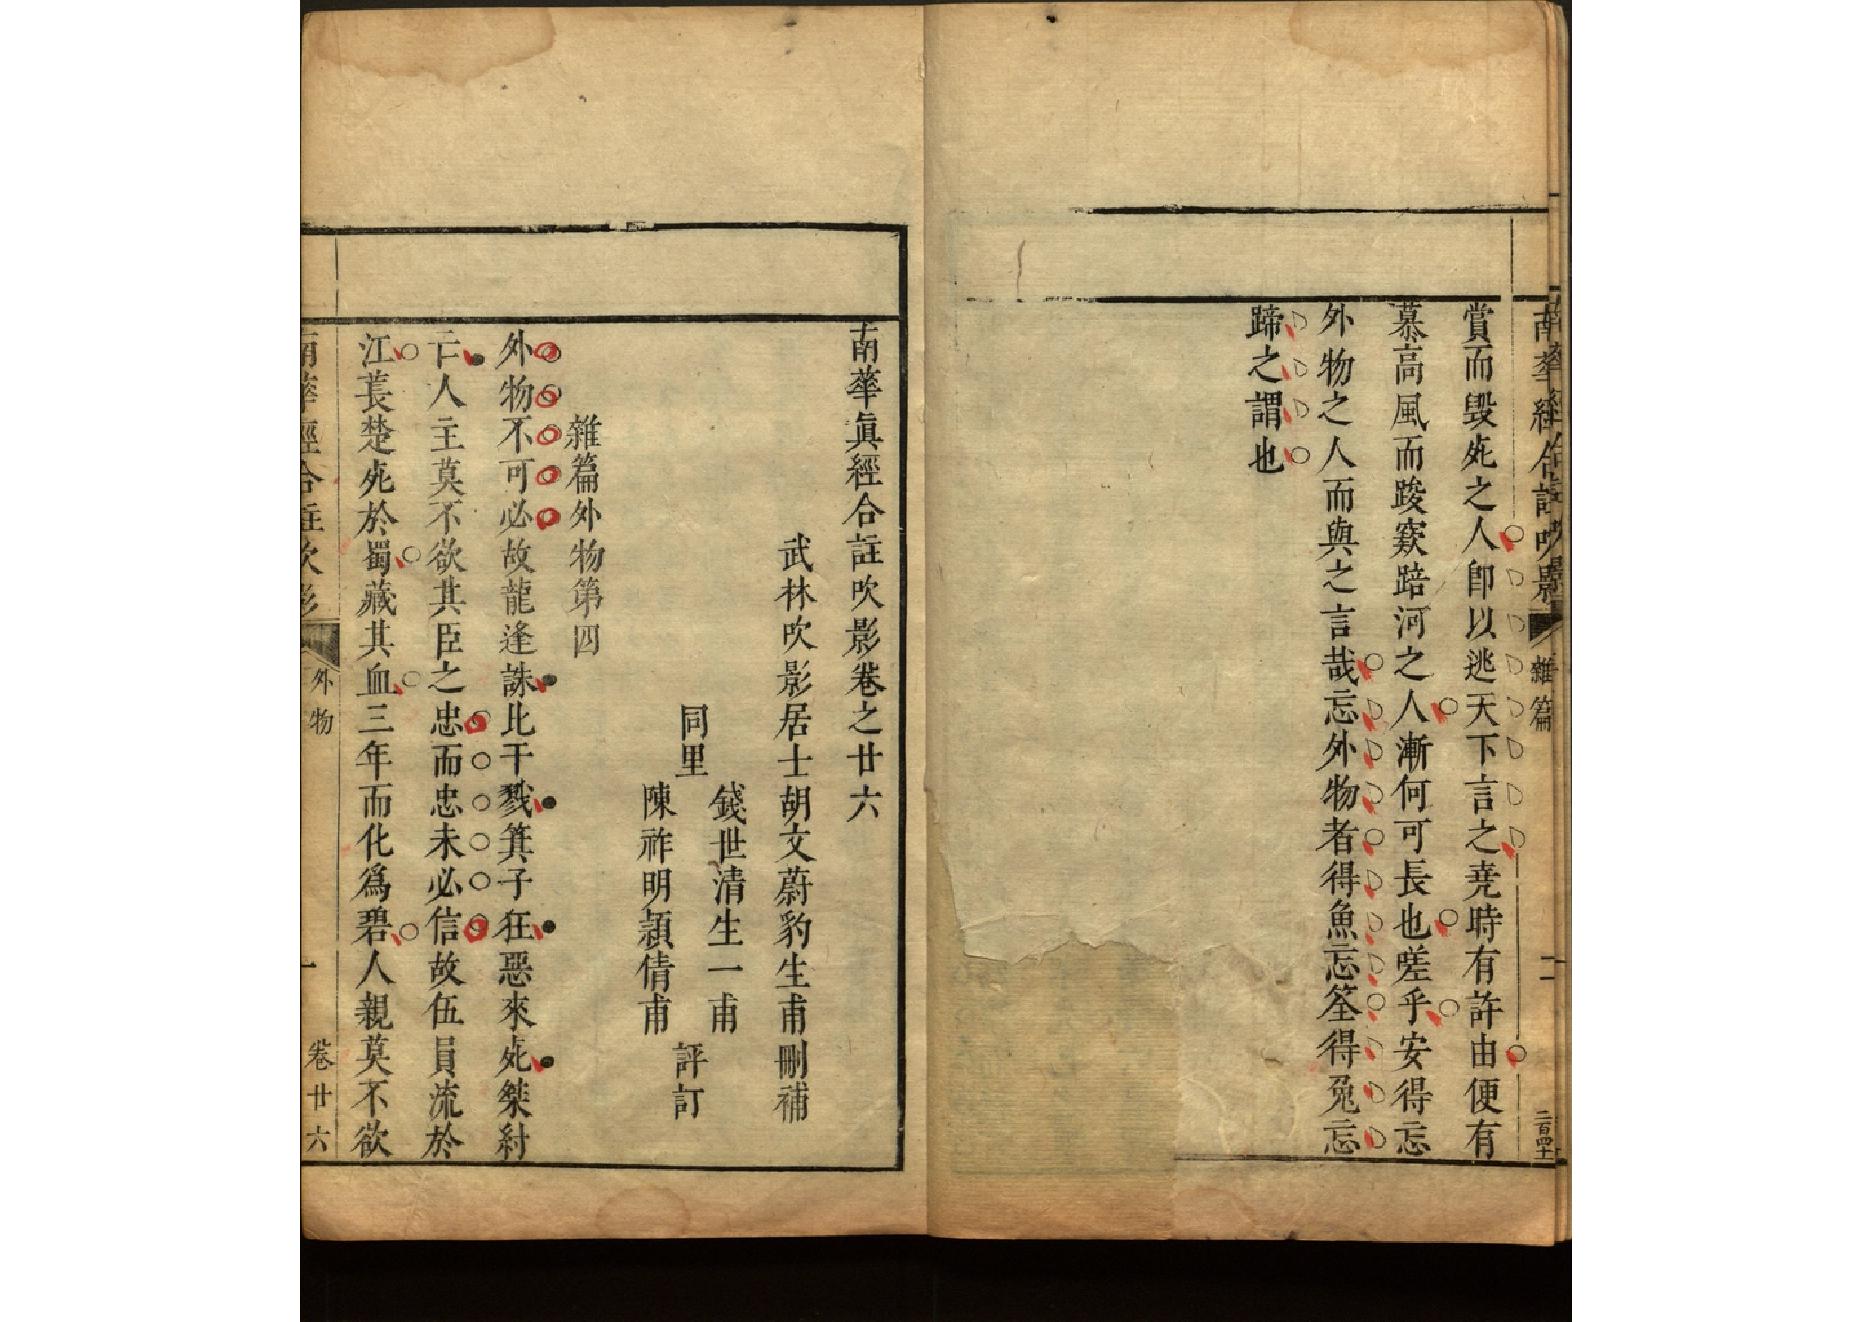 南華經合註吹影
雜篇
二
賞而毀死之人卽以逃天下言之堯時有許由便有
慕高風而踆窾踣河之人漸何可長也嗟乎安得忘
外物之人而與之言哉忘外物者得魚忘筌得兎忘
蹄之謂也
南華眞經合註吹影卷之廿六
武林吹影居士胡文蔚豹生甫刪補
同里
錢世清生一甫
陳祚明頴倩甫
評訂
雜篇外物第四
外物不可必故龍逢誅比干戮箕子狂惡來死桀紂
亡人主莫不欲其臣之忠而忠未必信故伍員流於
江萇楚死於蜀藏其血三年而化爲碧人親莫不欲
南華經合註吹影
外物
一
卷廿六